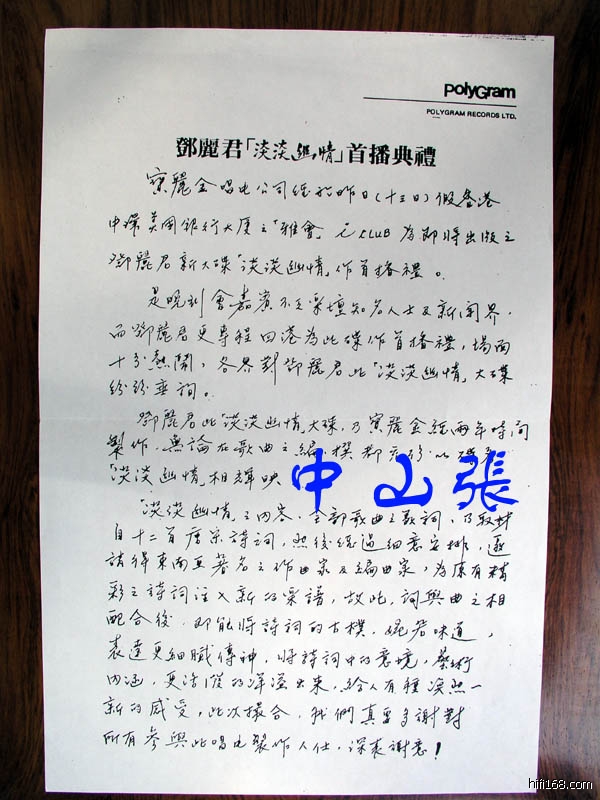 polyGram
POLYGRAM RECORDS LTD.
鄧麗君「淡淡幽情」首播典禮
寶麗金唱片公司經於昨日(十三日)假香港
中環美國銀行大廈之「雅會」 CLUB 為即將出版之
鄧麗君新大碟「淡淡幽情」作首播禮。
是晚到會嘉賓不乏樂壇知名人士及新聞界,
而鄧麗君更專程回港為此碟作首播禮,場面
十分熱鬧,各界對鄧麗君此「淡淡幽情」大碟
紛紛垂詢。
鄧麗君此「淡淡幽情」大碟,乃寶麗金經兩年時間
製作,無論在歌曲之編撰都
「淡淡幽情」相輝映
中山張
「淡淡幽情」之內容,全部歌曲之歌詞,乃取材
自十二首唐宋詩詞,然後經過細意安排,邀
請得東南亞著名之作曲家及編曲家,為原有精
彩之詩詞注入新的樂譜,故此,詞與曲之相
配合後,即能將詩詞的古樸,味道,
表達更細膩傳神,將詩詞中的意境,藝術
內涵,更活潑的洋溢出來,給人有種煥然一
新的感受,此次撮合,我們真要多謝對
所有參與此唱片製作人仕,深表謝意!
hifi168.com